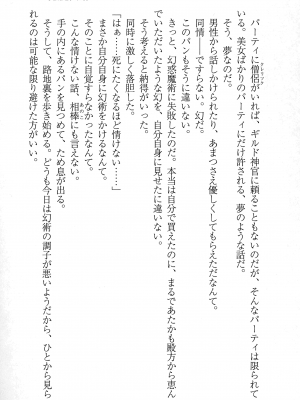 パーティに僧侶がいれば、ギルド神官に頼ることもないのだが、そんなパーティは限られて
いる。美女ばかりのパーティにだけ許される、夢のような話だ。
そう、夢なのだ。
男性から話しかけられたり、あまつさえ優しくしてもらえただなんて。
同情――ですらない。幻だ。
このパンもそうに違いない。
きっと、幻惑魔術に失敗したのだ。本当は自分で買えたのに、まるであたかも殿方から恵ん
でいただいたような幻を、自分自身に見せたに違いない。
そう考えると納得がいった。
同時に激しく落胆した。
「はぁ……死にたくなるほど情けない……」
まさか自分自身に幻術をかけるなんて。
そのことに自覚すらなかったなんて。
こんな情けない話、相棒にも言えない。
手の内にあるパンを見つめて、ため息が出る。
そうして、路地裏を歩き始める。どうも今日は幻術の調子が悪いようだから、ひとから見ら
れるのは可能な限り避けた方がいい。